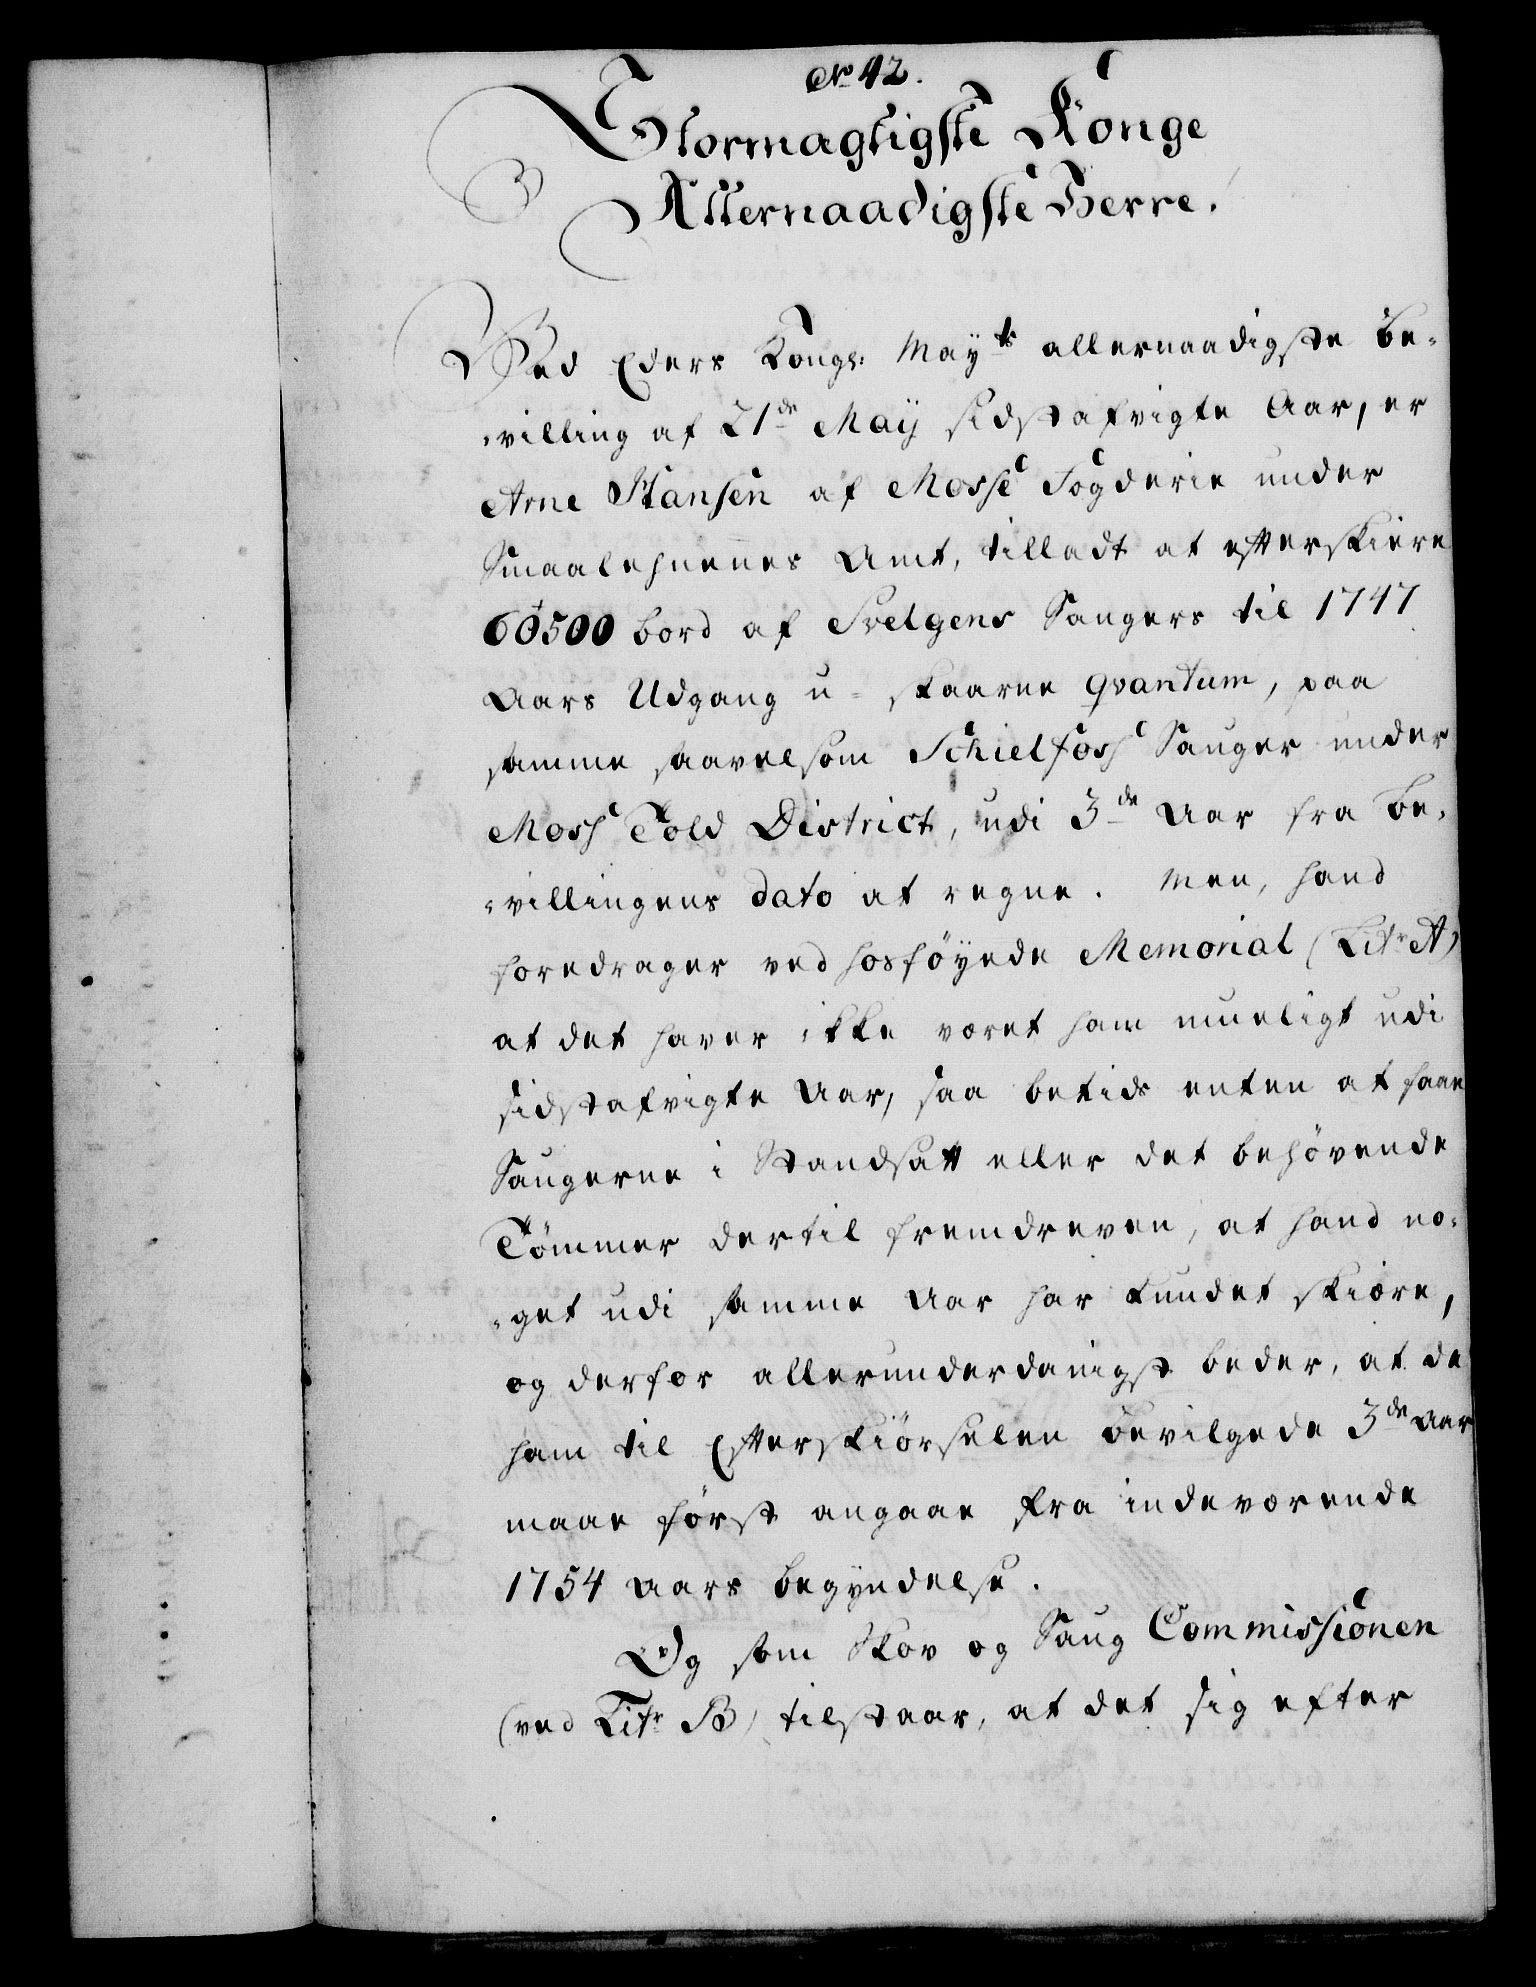 No 42.
Stormagtigste Konge
Allernaadigste Herre.
Ved Eders Kongl: Mayts allernaadigste be-
-villing af 21de Maij sidstafvigte Aar, er
Arne Hansen af Mosse Fogderie under
Smaalehnenes Amt, tilladt at efterskiere
60500 bord af Svelgens Sauges til 1747
Aars Udgang u-skaarne qvantum, paa
samme saavelsom Schielfos Sauger under
Moss Told District, udi 3de Aar fra be-
-villingens dato at regne. Men, hand
foredrager ved hosføyede Memorial (Litr A)
at det haver ikke voret ham mueligt udi
sidstafvigte Aar, saa betids enten at faae
Saugerne i Standsatt eller det behøvende
Tømmer dertil fremdreven, at hand no-
-get udi samme Aar har kundet skiøre,
og derfor allerunderdanigst beder, at de
ham til Efterskiørselen bevilgede 3de Aar
maae først angaae fra indeværende
1754 Aars begyndelse.
Og som Skov og Saug Commissionen
(ved Litr B) tilstaar, at det sig efter